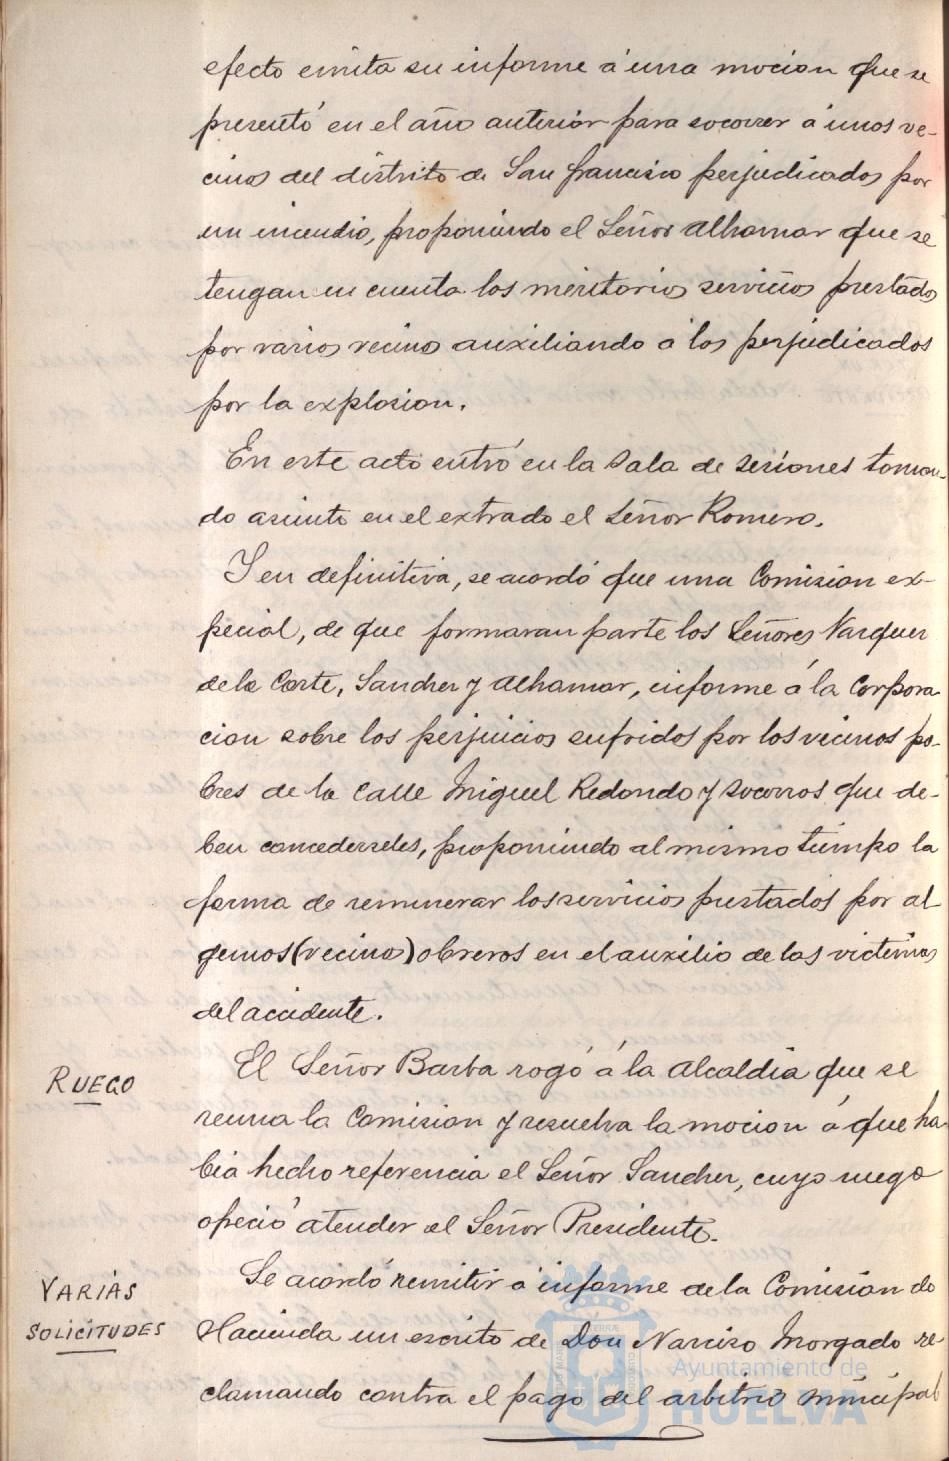 efecto emita su informe á una mocion que se
presentó en el año anterior para socorrer á unos ve-
cinos del distrito de San Francisco perjudicados por
un incendio, proponiendo el Señor Alhamar que se
tengan en cuenta los meritorios servicios prestados
por varios vecinos auxiliando á los perjudicados
por la explosion.
En este acto entró en la Sala de sesiones toman-
do asiento en el extrado el Señor Romero.
Y en definitiva, se acordó que una Comision ex-
pecial, de que formaran parte los Señores Vazquez
de la Corte, Sanchez y Alhamar, informe á la Corpora-
cion sobre los perjuicios sufridos por los vecinos po-
bres de la calle Miguel Redondo y socorros que de-
ben concederseles, proponiendo al mismo tiempo la
forma de remunerar los servicios prestados por al
gunos (vecinos) obreros en el auxilio de las victimas
del accidente.
RUEGO
El Señor Barba rogó á la Alcaldia que se
reuna la Comision y resuelva la mocion á que ha-
bia hecho referencia el Señor Sanchez, cuyo ruego
ofreció atender el Señor Presidente.
VARIAS
SOLICITUDES
Se acordó remitir á informe de la Comision de
Hacienda un escrito de Don Narciso Morgado re-
clamando contra el pago del arbitrio municipal
Ayuntamiento de
HUELVA